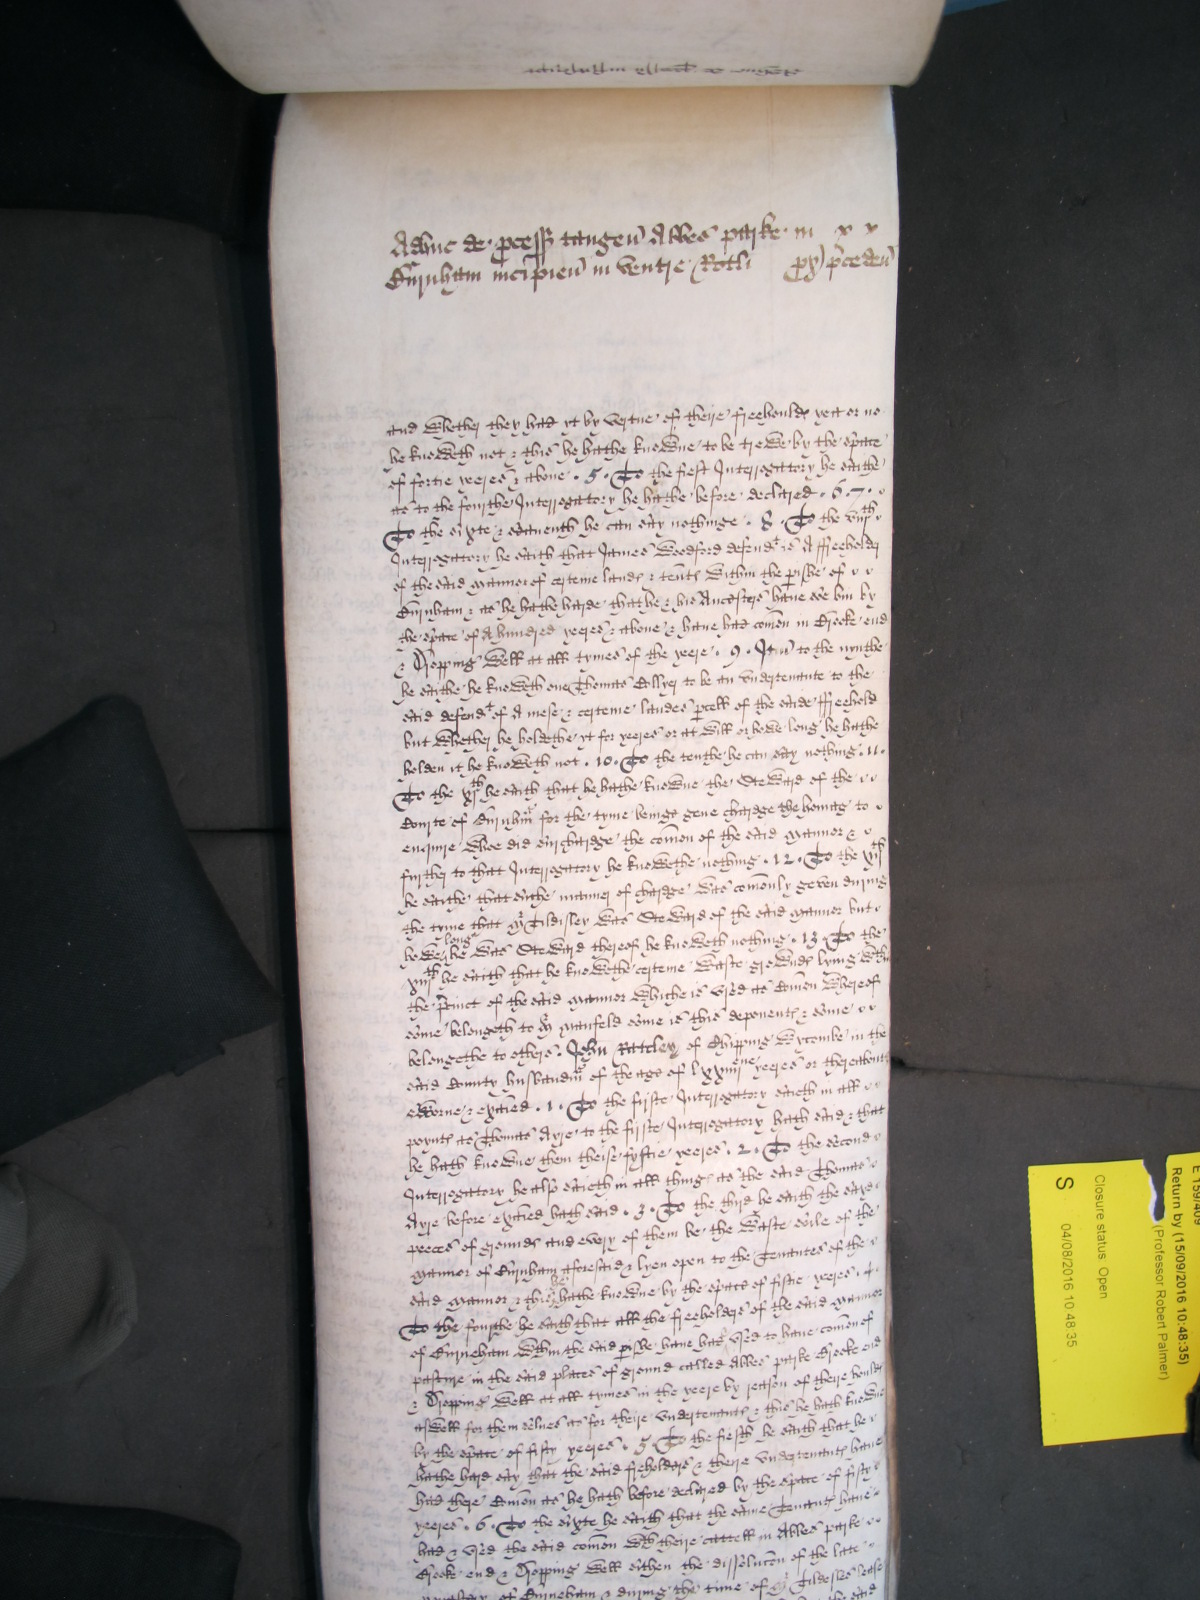 Adhuc de processu tangen Abbes parke in
Burnham incipien in ventre Rotli preceden
and whether they had yt by vertue of theire freehoulds yett or no
he knoweth not & this he hathe knowne to be trewe by the space
of fortie yeres & above . 5 . To the fieft Interrogatory he saithe
as to the fourthe Interrogatory he hathe before declared . 6 . 7 .
To the sixte & seaventh he can say nothinge . 8 . To the viijth
Interrogatory he saith that James Woodford defendt is A ffreeholder
of the said mannor of certeine lands & tents within the pishe of
Burnham & as he hathe harde that he & his Ancestors have soe bin by
the space of A hundred yeres & above & have had comon in Brooke end
& Dropping Well at all tymes of the yeere . 9 . Itm to the nynthe
he saithe he knoweth one Thomas Collyer to be an undertenante to the
said defendt of A mese & certeine landes pcell of the saide ffreehold
but whether he holdethe yt for yeeres or at will or howe long he hathe
holden it he knoweth not . 10 . To the tenthe he can say nothing . 11 .
To the xjth he saith that he hathe knowne the Steward of the
Courte of Burnham for the tyme beinge geve chardge the homag to
enquire whoe did surchardge the comon of the said mannor &
further to that Interrogatory he knowethe nothing . 12 . To the xijth
he saithe that suche manner of chardge was comonly geven during
the tyme that Mr Tildisley was Steward of the said mannor but
howe long he was Steward thereof he knoweth nothing . 13 . To the
xiijth he saith that he knowethe certeine waste grownds lying wthin
the pcinct of the said mannor whiche is used as Comon whereof
some belongeth to Mr Manfeld some is this deponents & some
belongethe to others . John Ratcley of Chipping Wycombe in the
said County husbandm of the age of lxxiiij yeeres or thereabouts
sworne & exaied . 1 . To the firste Interrogatory saieth in all
poynts as Thomas Ayre to the firste Interrogatory hath said & that
he hath knowne them theise fyftie yeeres . 2 . To the second
Interrogatory he also saieth in all things as the said Thomas
Ayre before exaied hath said . 3 . To the third he saith the sayd
peeces of grounds and every of them be the waste soile of the
mannor of Burnham aforesaid & lyen open to the Tenantes of the
said mannor & this he hathe knowne by the space of fiftie yeres . 4 .
To the fourthe he saith that all the freeholders of the said mannor
of Burneham wthin the said pishe have had & used to have comon of
pasture in the said places of ground called Abbes parke Brooke end
& Dropping Well at all tymes in the yeere by reason of theire houlds
aswell for them selves as for theire undertenants & this he hath knowne
by the space of fifty yeeres . 5 . To the fiefth he saith that he
hathe hard say that the said freholders & theire undertenants have
had there Comon as he hath before declared by the space of fifty
yeeres . 6 . To the sixte he saith that the same Tenants have
had & used the said comon wth theire cattell in Abbes parke
Brooke end & Dropping Well sithen the dissolucon of the late
of Burneham & during the time of Mr Tildesles lease
E 159/409
Return by (15/09/2016 10:48:35)
(Professor Robert Palmer)
Closure status: Open
S 04/08/2016 10:48:35